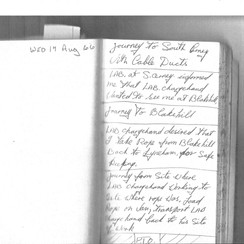 WED 17 Aug 66
Journey to South
With Cable Ducts
LAB. at S. informed
me that LAB chargehand
wanted to see me at Blakehill
Journey to Blakehill
LAB chargehand desired that
I take Rope from Blakehill
Back to Lyneham, for safe
keeping.
Journey from Site where
LAB chargehand working to
Site where rope was, load
rope on Van, transport LAB
chargehand back to his site
of Work
P.T.O.